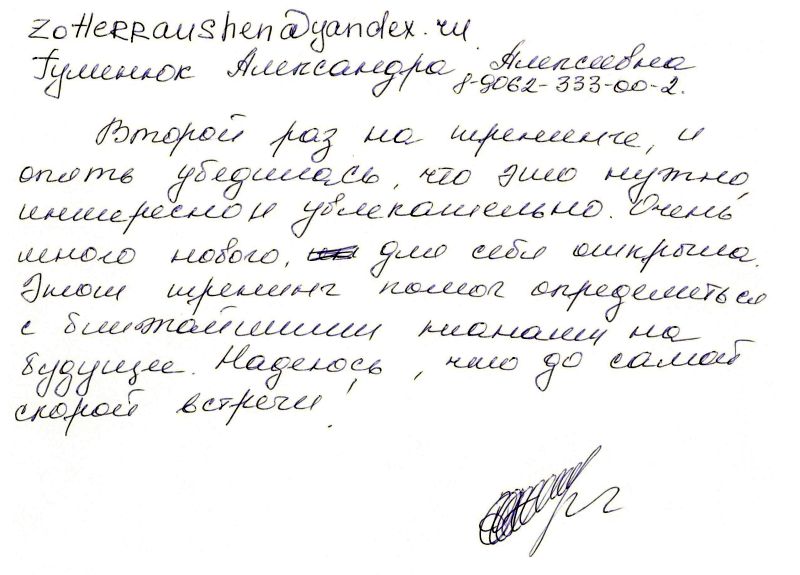 zotterraushen@yandex.ru
Гуменюк Александра Алексеевна
8-9062-333-00-2.
Второй раз на тренинге, и
опять убедилась, что это нужно,
интересно и увлекательно. Очень
много нового, для себя открыла.
Этот тренинг помог определиться
с ближайшими планами на
будущее. Надеюсь, что до самой
скорой встречи!